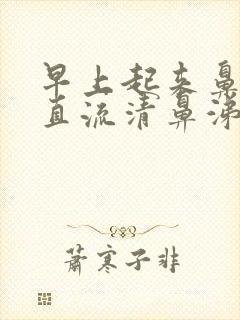 早上起来鼻
直流清鼻涕
萧寒子非